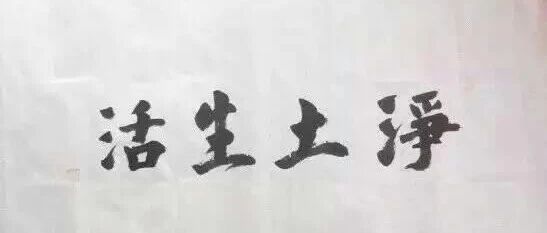 淨土生活